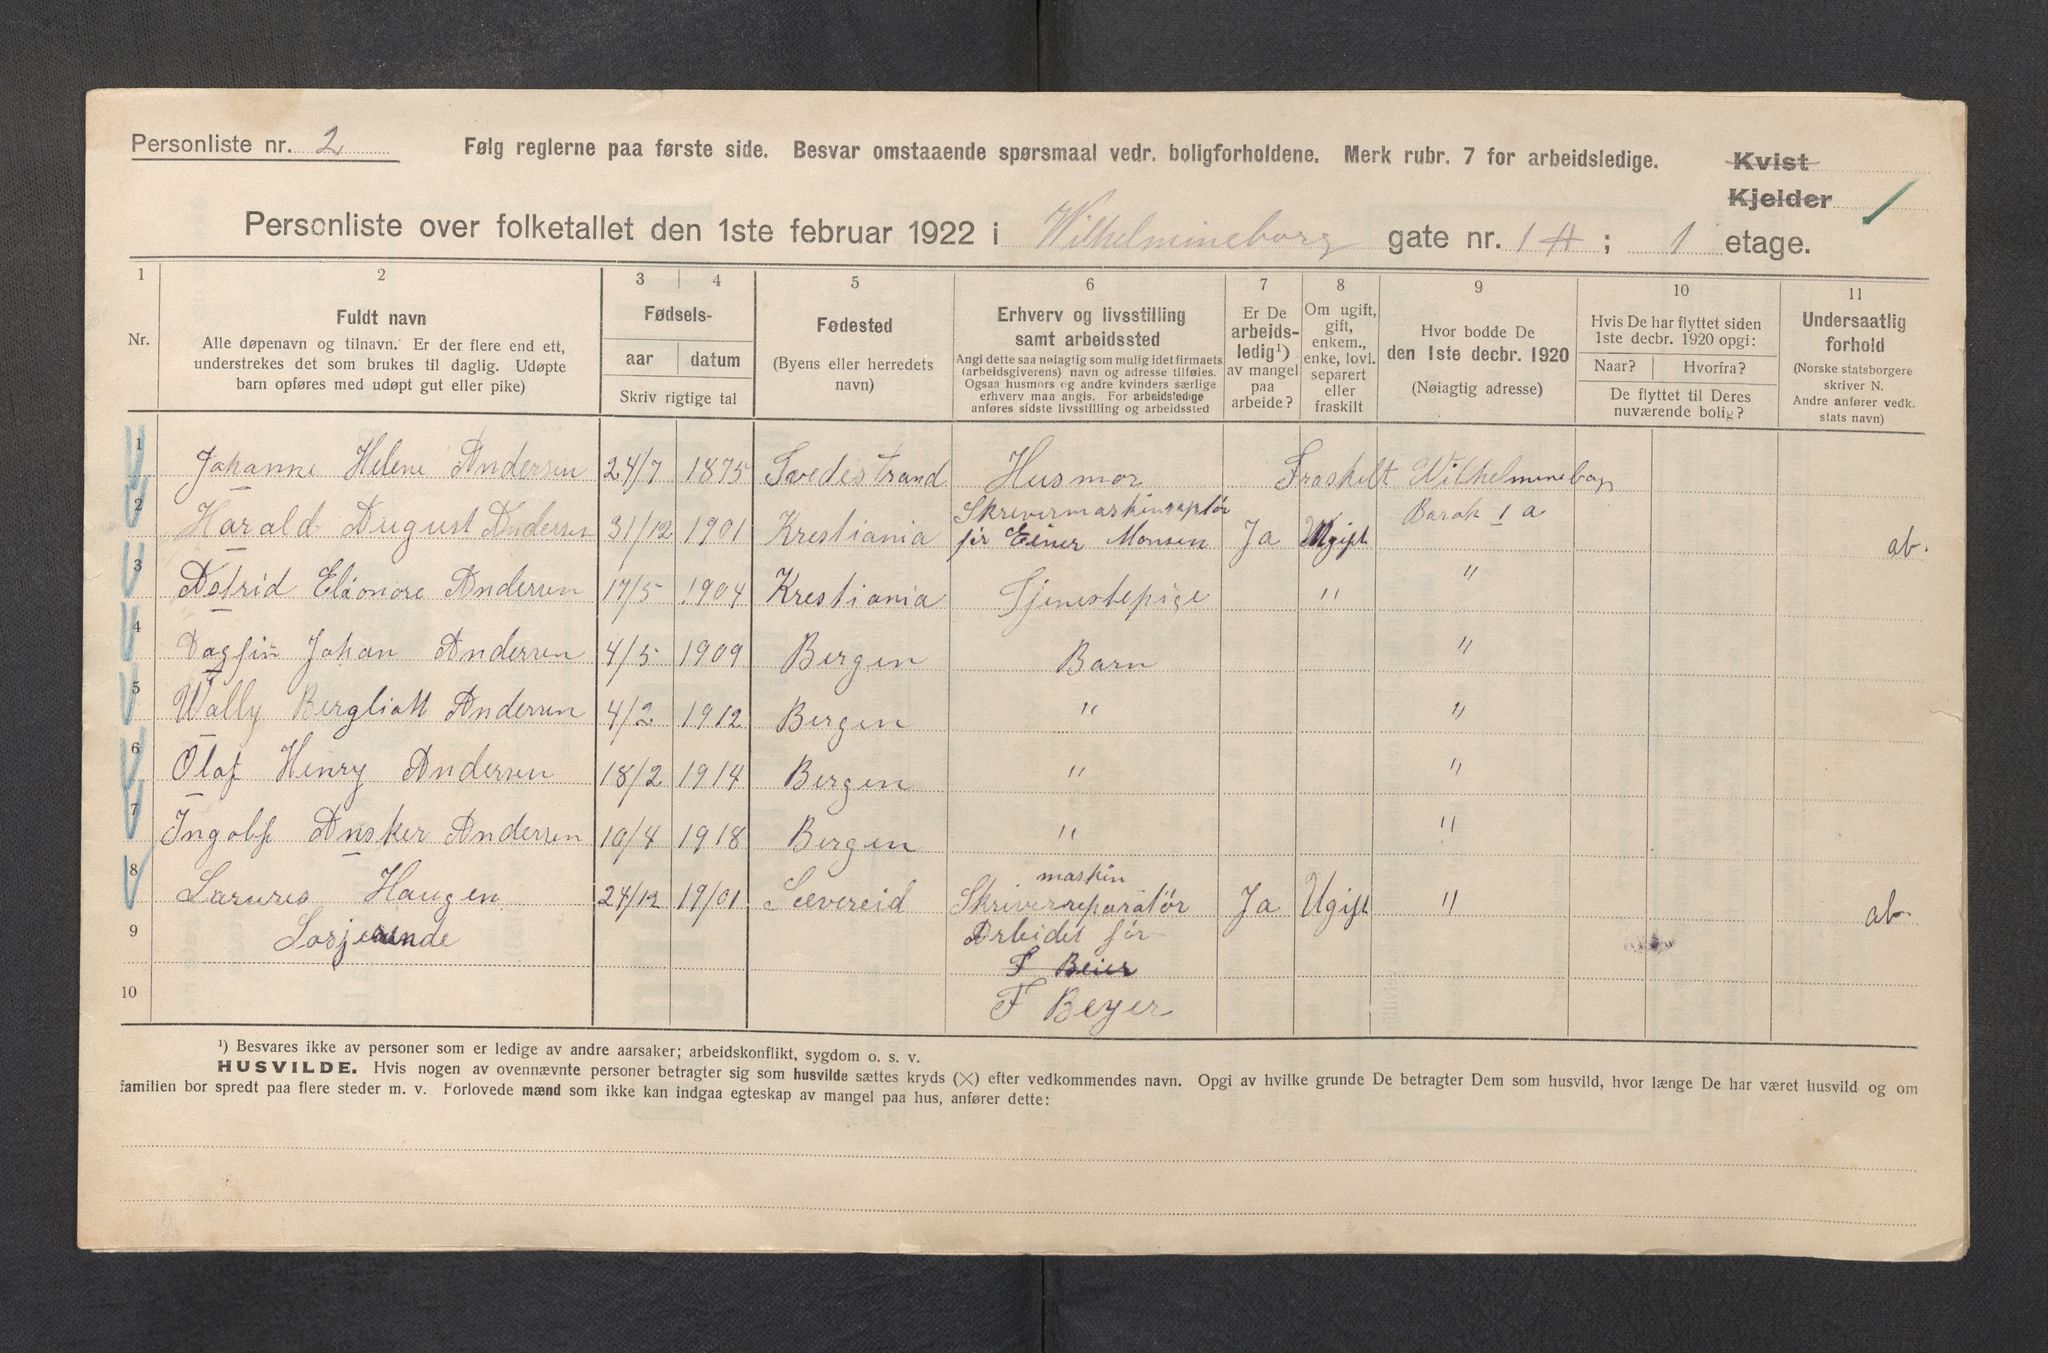 Personliste nr. 2
Følg reglerne paa første side. Besvar omstaaende spørsmaal vedr. boligforholdene. Merk rubr. 7 for arbeidsledige.
Kvist
Kjelder
Personliste over folketallet den 1ste februar 1922 i Wilhelmineborg gate nr. 1 ; 1 etage.
1 2 3 4 5 6 7 8 9 10 11
Nr.
Fuldt navn
Alle døpenavn og tilnavn. Er der flere end ett,
understrekes det som brukes til daglig. Udøpte
barn opføres med udøpt gut eller pike)
Fødsels-
aar datum
Skriv rigtige tal
Fødested
(Byens eller herredets
navn)
Erhverv og livsstilling
samt arbeidssted
Angi dette saa nøiagtig som mulig idet firmaets
(arbeidsgiverens) navn og adresse tilføies.
Ogsaa husmors og andre kvinders særlige
erhverv maa angis. For arbeidsledige
anføres sidste livsstilling og arbeidssted
Er De
arbeids-
ledig¹)
av mangel
paa
arbeide?
Om ugift,
gift,
enkem.,
enke, lovl.
separert
eller
fraskilt
Hvor bodde De
den 1ste decbr. 1920
(Nøiagtig adresse)
Hvis De har flyttet siden
1ste decbr. 1920 opgi:
Naar? Hvorfra?
De flyttet til Deres
nuværende bolig?
Undersaatlig
forhold
(Norske statsborgere
skriver N.
Andre anfører vedk.
stats navn)
1 Johanne Helene Andersen 24/7 1875 Tvedestrand Husmor Fraskelt Wilhelmineborg
2 Harald August Andersen 31/12 1901 Krestiania Skrivermaskinreptør for Einer Monsen Ja Ugift Barak 1 a ab.
3 Astrid Eleonore Andersen 17/5 1904 Krestiania Tjenestepige " "
4 Dagfin Johan Andersen 4/5 1909 Bergen Barn "
5 Wally Bergliott Andersen 4/2 1912 Bergen " "
6 Olaf Henry Andersen 18/2 1914 Bergen " "
7 Ingolf Ansker Andersen 10/4 1918 Bergen " "
maskin
8 Haugen 24/12 1901 Sævereid Skriverreparatør Ja Ugift " ab.
9 Losjerende Arbeidet for
F Beier
10 F Beyer
¹) Besvares ikke av personer som er ledige av andre aarsaker; arbeidskonflikt, sygdom o. s. v.
HUSVILDE. Hvis nogen av ovennævnte personer betragter sig som husvilde sættes kryds (×) efter vedkommendes navn. Opgi av hvilke grunde De betragter Dem som husvild, hvor længe De har været husvild og om
familien bor spredt paa flere steder m. v. Forlovede mænd som ikke kan indgaa egteskap av mangel paa hus, anfører dette: